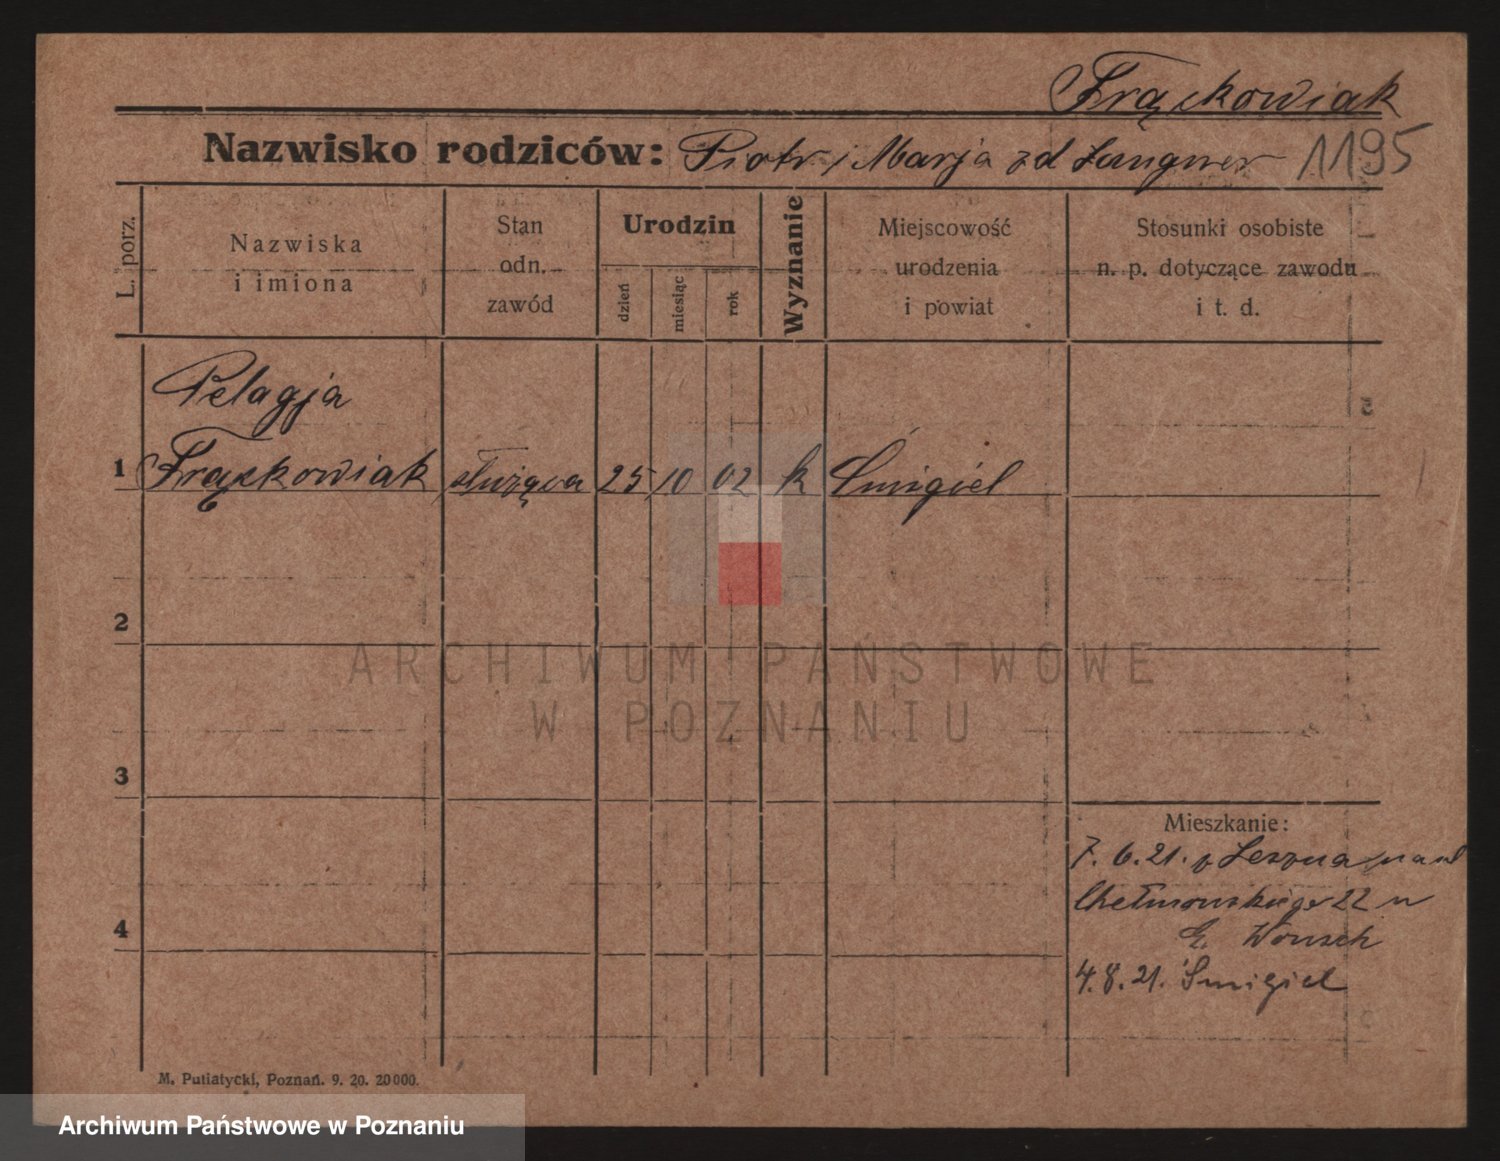 Frąckowiak
Nazwisko rodziców: Piotr i Marja zd Langner 1195
L. porz.
Nazwiska
i imiona
Stan
odn.
zawód
Urodzin
dzień
miesiąc
rok
Wyznanie
Miejscowość
urodzenia
i powiat
Stosunki osobiste
n. p. dotyczące zawodu
i t. d.
Pelagja
1 Frąckowiak służąca 25 10 02 k Śmigiel
2
3
4
Mieszkanie:
7. 6. 21. Leszna
22
E. Wünsch
4. 8. 21. Śmigiel
M. Putiatycki, Poznań. 9. 20. 20000.
ARCHIWUM PAŃSTWOWE
W POZNANIU
Archiwum Państwowe w Poznaniu